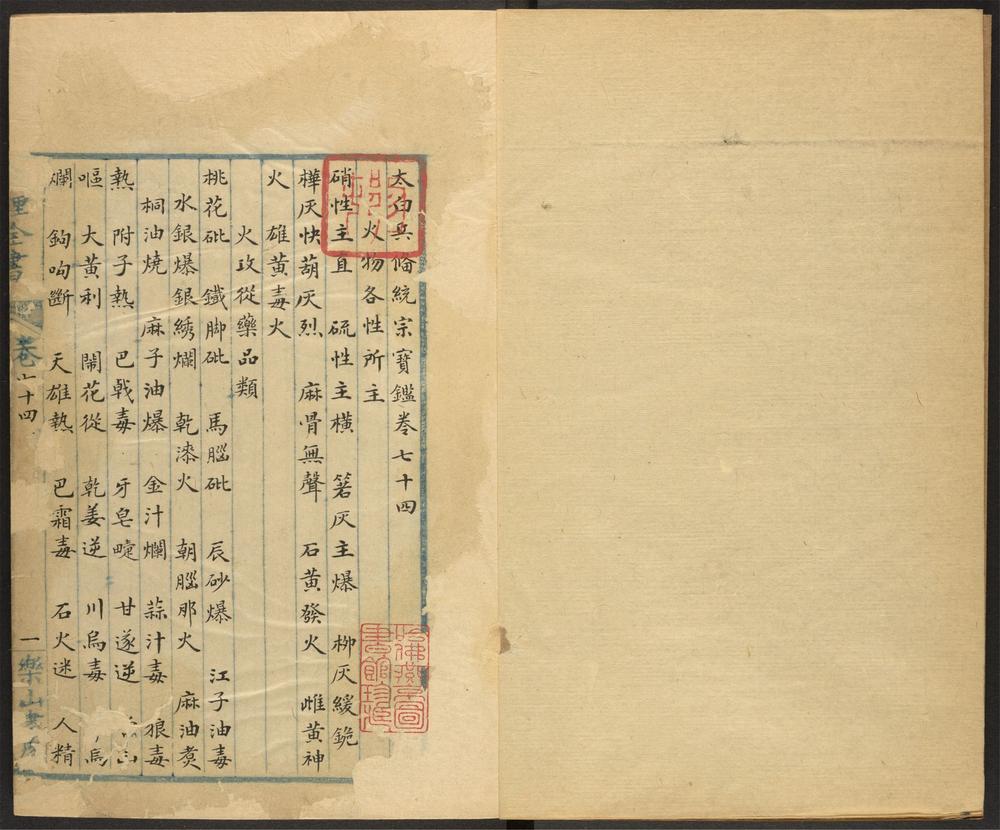 太白兵僃統宗寳鑑卷七十四
火物各性所主
硝性主直 硫性主橫 箬灰主爆 柳灰緩銃
樺灰快葫灰烈 麻骨無聲 石黃發火 雌黃神
火 雄黃毒火
火攻從藥品類
桃花砒 鐵脚砒 馬腦砒 辰砂爆 江子油毒
水銀爆銀綉爛 乾漆火 朝腦那火 麻油煑
桐油燒 麻子油爆 金汁爛 蒜汁毒 狼毒
熱 附子熱 巴戟毒 牙皂嚏 甘遂逆
嘔 大黃利 閙花從 乾姜逆 川烏毒 烏
爛 鉤吻斷 天雄熱 巴霜毒 石火迷 人精
理全書 卷七十四 一 樂山
哈佛燕京圖書館珍藏